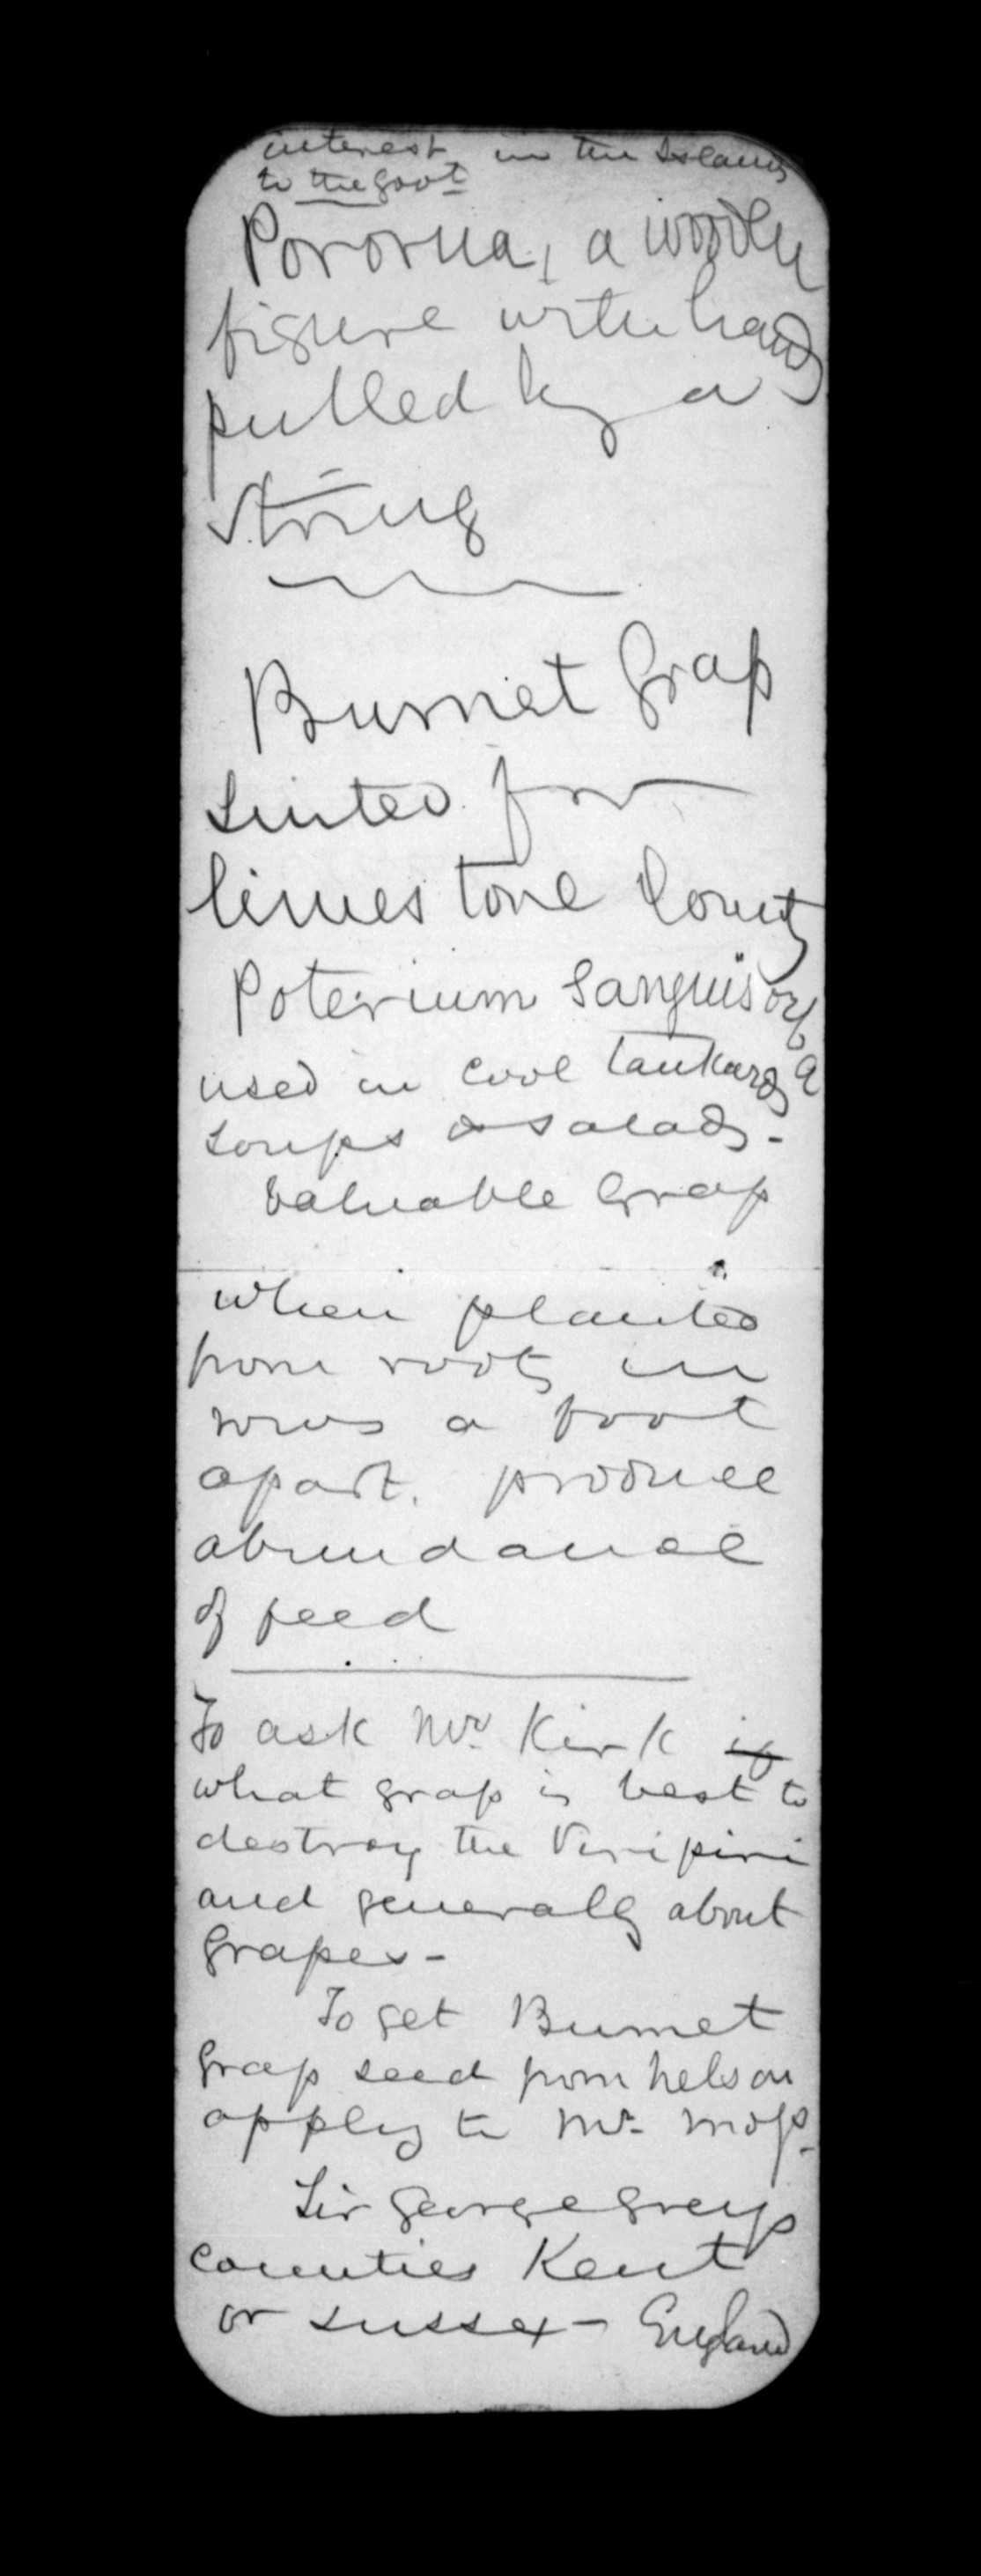 interest in the Islands
to the govt
Pororua, a wooden
figure with hands
pulled by a
string
Burnet Grass
suited for
limestone County
Poterium Sanguisorba
used in cool tankards
soups & salads -
Valuable Grass
when planted
from roots in
rows a foot
apart. produce
abundance
of feed
To ask Mr. Kirk if
what grass is best to
destroy the Piripiri
and generally about
Grasses -
To get Burnet
Grass seed from Nelson
apply to Mr. Moss.
Sir George Greys
counties Kent
or Sussex - England